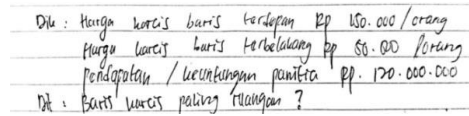 Dik : Harga karcis baris terdepan Rp 150.000 / orang
Harga karcis baris terbelakang Rp 50.000 / orang
Pendapatan / keuntungan panitia Rp. 120.000.000
Dit : Baris karcis paling ruangan ?